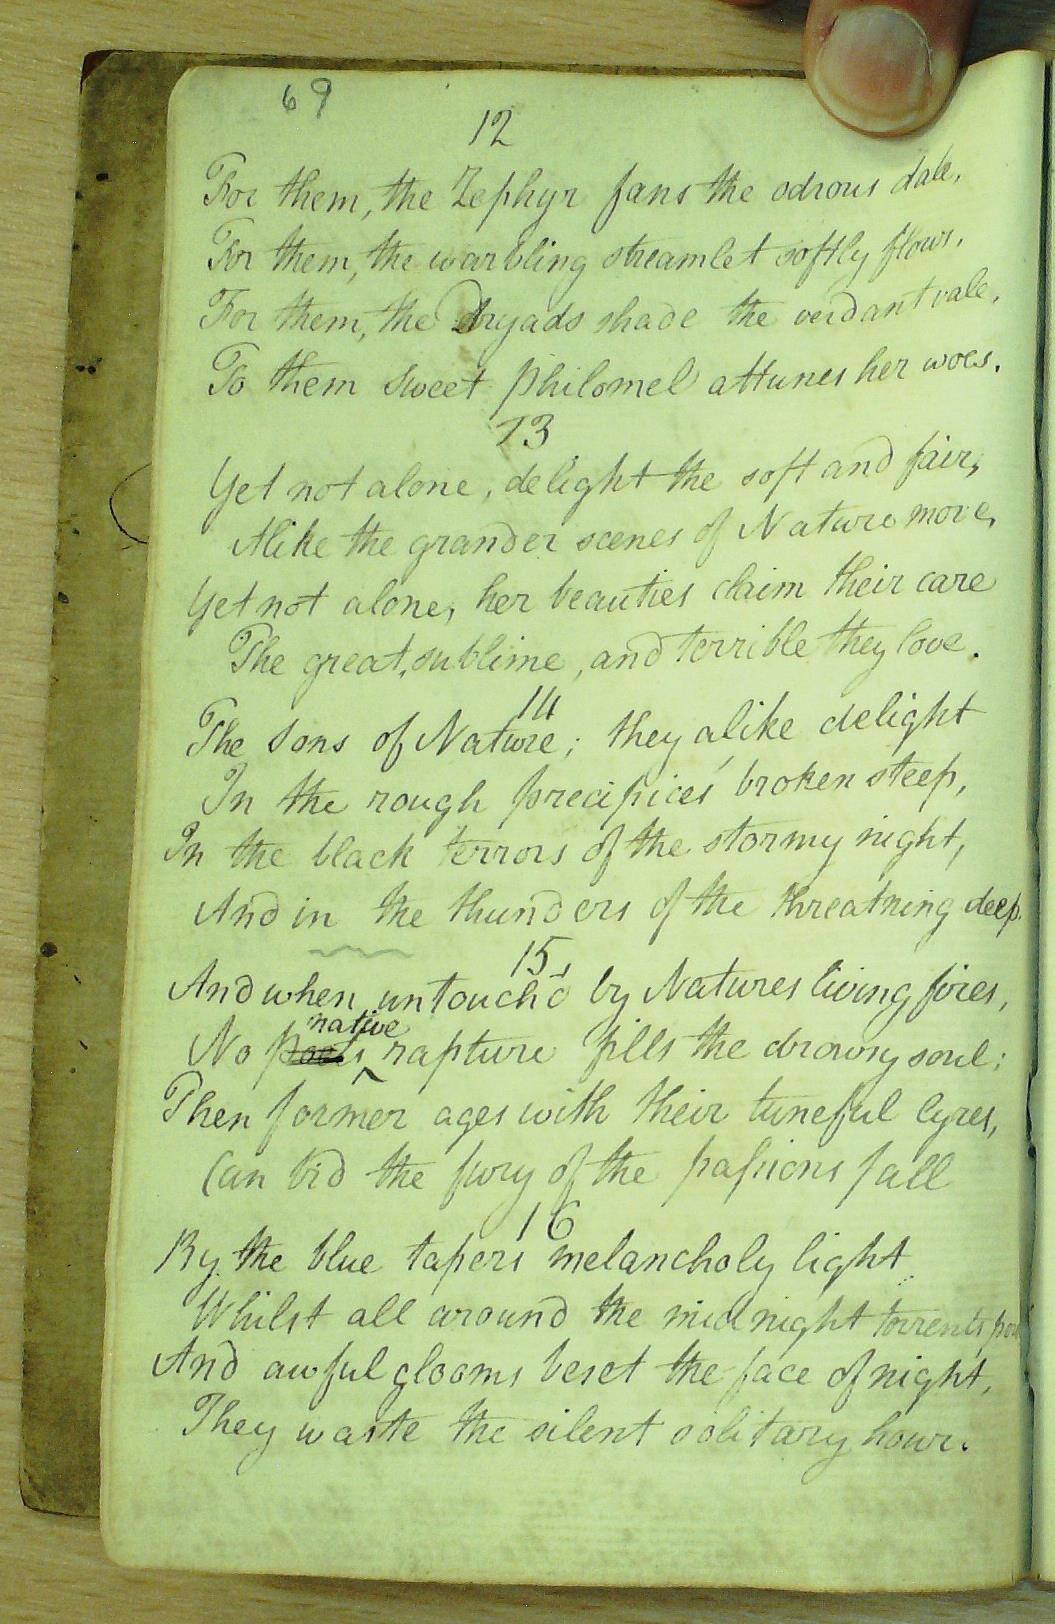 69
12
For them, the Zephyr fans the odrous dale,
For them, the warbling streamlet softly flows,
For them, the Dryads shade the verdant vale,
To them sweet Philomel attunes her woes.
13
Yet not alone, delight the soft and fair,
Alike the grander scenes of Nature move,
Yet not alone, her beauties claim their care
The great, sublime, and terrible they love.
14
The sons of Nature; they alike delight
In the rough precipices' broken steep,
In the black terrors of the stormy night,
And in the thunders of the threatning deep.
15
And when untouch'd by Natures living fires,
native
No rapture fills the drowsy soul:
Then former ages with their tuneful lyres,
Can bid the fury of the paſsions fall
16
By the blue tapers melancholy light
Whilst all around the midnight torrents
And awful glooms beset the face of night,
They waste the silent solitary hour.